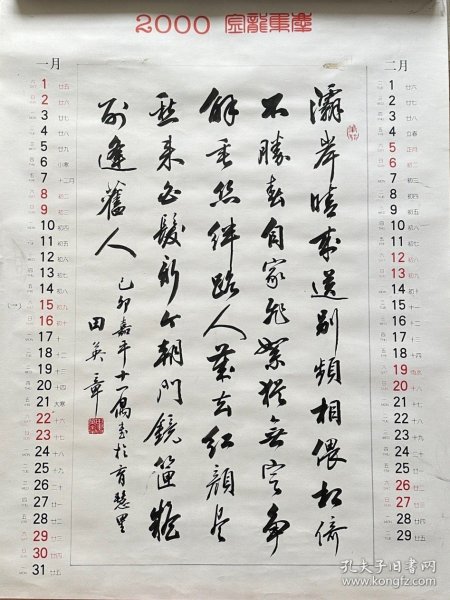 2000
一月
1 廿五
2 廿六
3 廿七
4 廿八
5 廿九
6 小寒
7 十二月
8 初二
9 初三
10 初四
11 初五
12 初六
13 初七
14 初八
15 初九
16 初十
17 十一
18 十二
19 十三
20 十四
21 大寒
22 十六
23 十七
24 十八
25 十九
26 二十
27 廿一
28 廿二
29 廿三
30 廿四
31 廿五
二月
1 廿六
2 廿七
3 廿八
4 立春
5 正月
6 初二
7 初三
8 初四
9 初五
10 初六
11 初七
12 初八
13 初九
14 初十
15 十一
16 十二
17 十三
18 十四
19 雨水
20 十六
21 十七
22 十八
23 十九
24 二十
25 廿一
26 廿二
27 廿三
28 廿四
29 廿五
灞岸晴来送别頻相偎相倚
不勝春自家飛絮猶無定争
解垂丝绊路人歲去红顏尽
愁来白髮新今朝開鏡匣疑
别逢舊人
己卯嘉平十一偶書於育慧里
田英章
孔夫子旧书网
www.kongfz.com